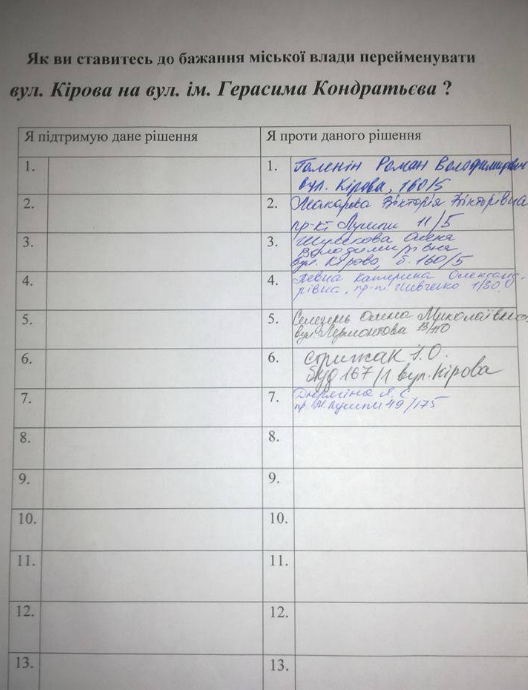 Як ви ставитесь до бажання міської влади перейменувати
вул. Кірова на вул. ім. Герасима Кондратьєва ?
Я підтримую дане рішення
Я проти даного рішення
1.
1. Роман Володимирович
вул. Кірова, 160/5
2.
2. Макарова Вікторія Вікторівна
пр-кт Лушпи 11/5
3.
3. Олена
Володимирівна
вул. Кірова, б. 160/5
4.
4. Певна Катерина Олександ-
рівна, пр-т Шевченко 1/30
5.
5. Олена Миколаївна
вул. Лермонтова
6.
6. Стрижак І.О.
буд 167/1 вул. Кірова
7.
7.
пр. М Лушпи 49/175
8.
8.
9.
9.
10.
10.
11.
11.
12.
12.
13.
13.